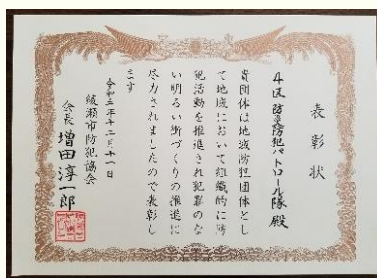 表彰状
4区防災防犯パトロール隊 殿
貴団体は地域防犯団体とし
て地域において組織的に防
犯活動を推進され犯罪のな
い明るい街づくりの推進に
尽力されましたので表彰し
ます
令和三年十二月十一日
綾瀬市防犯協会
会長 増田淳一郎